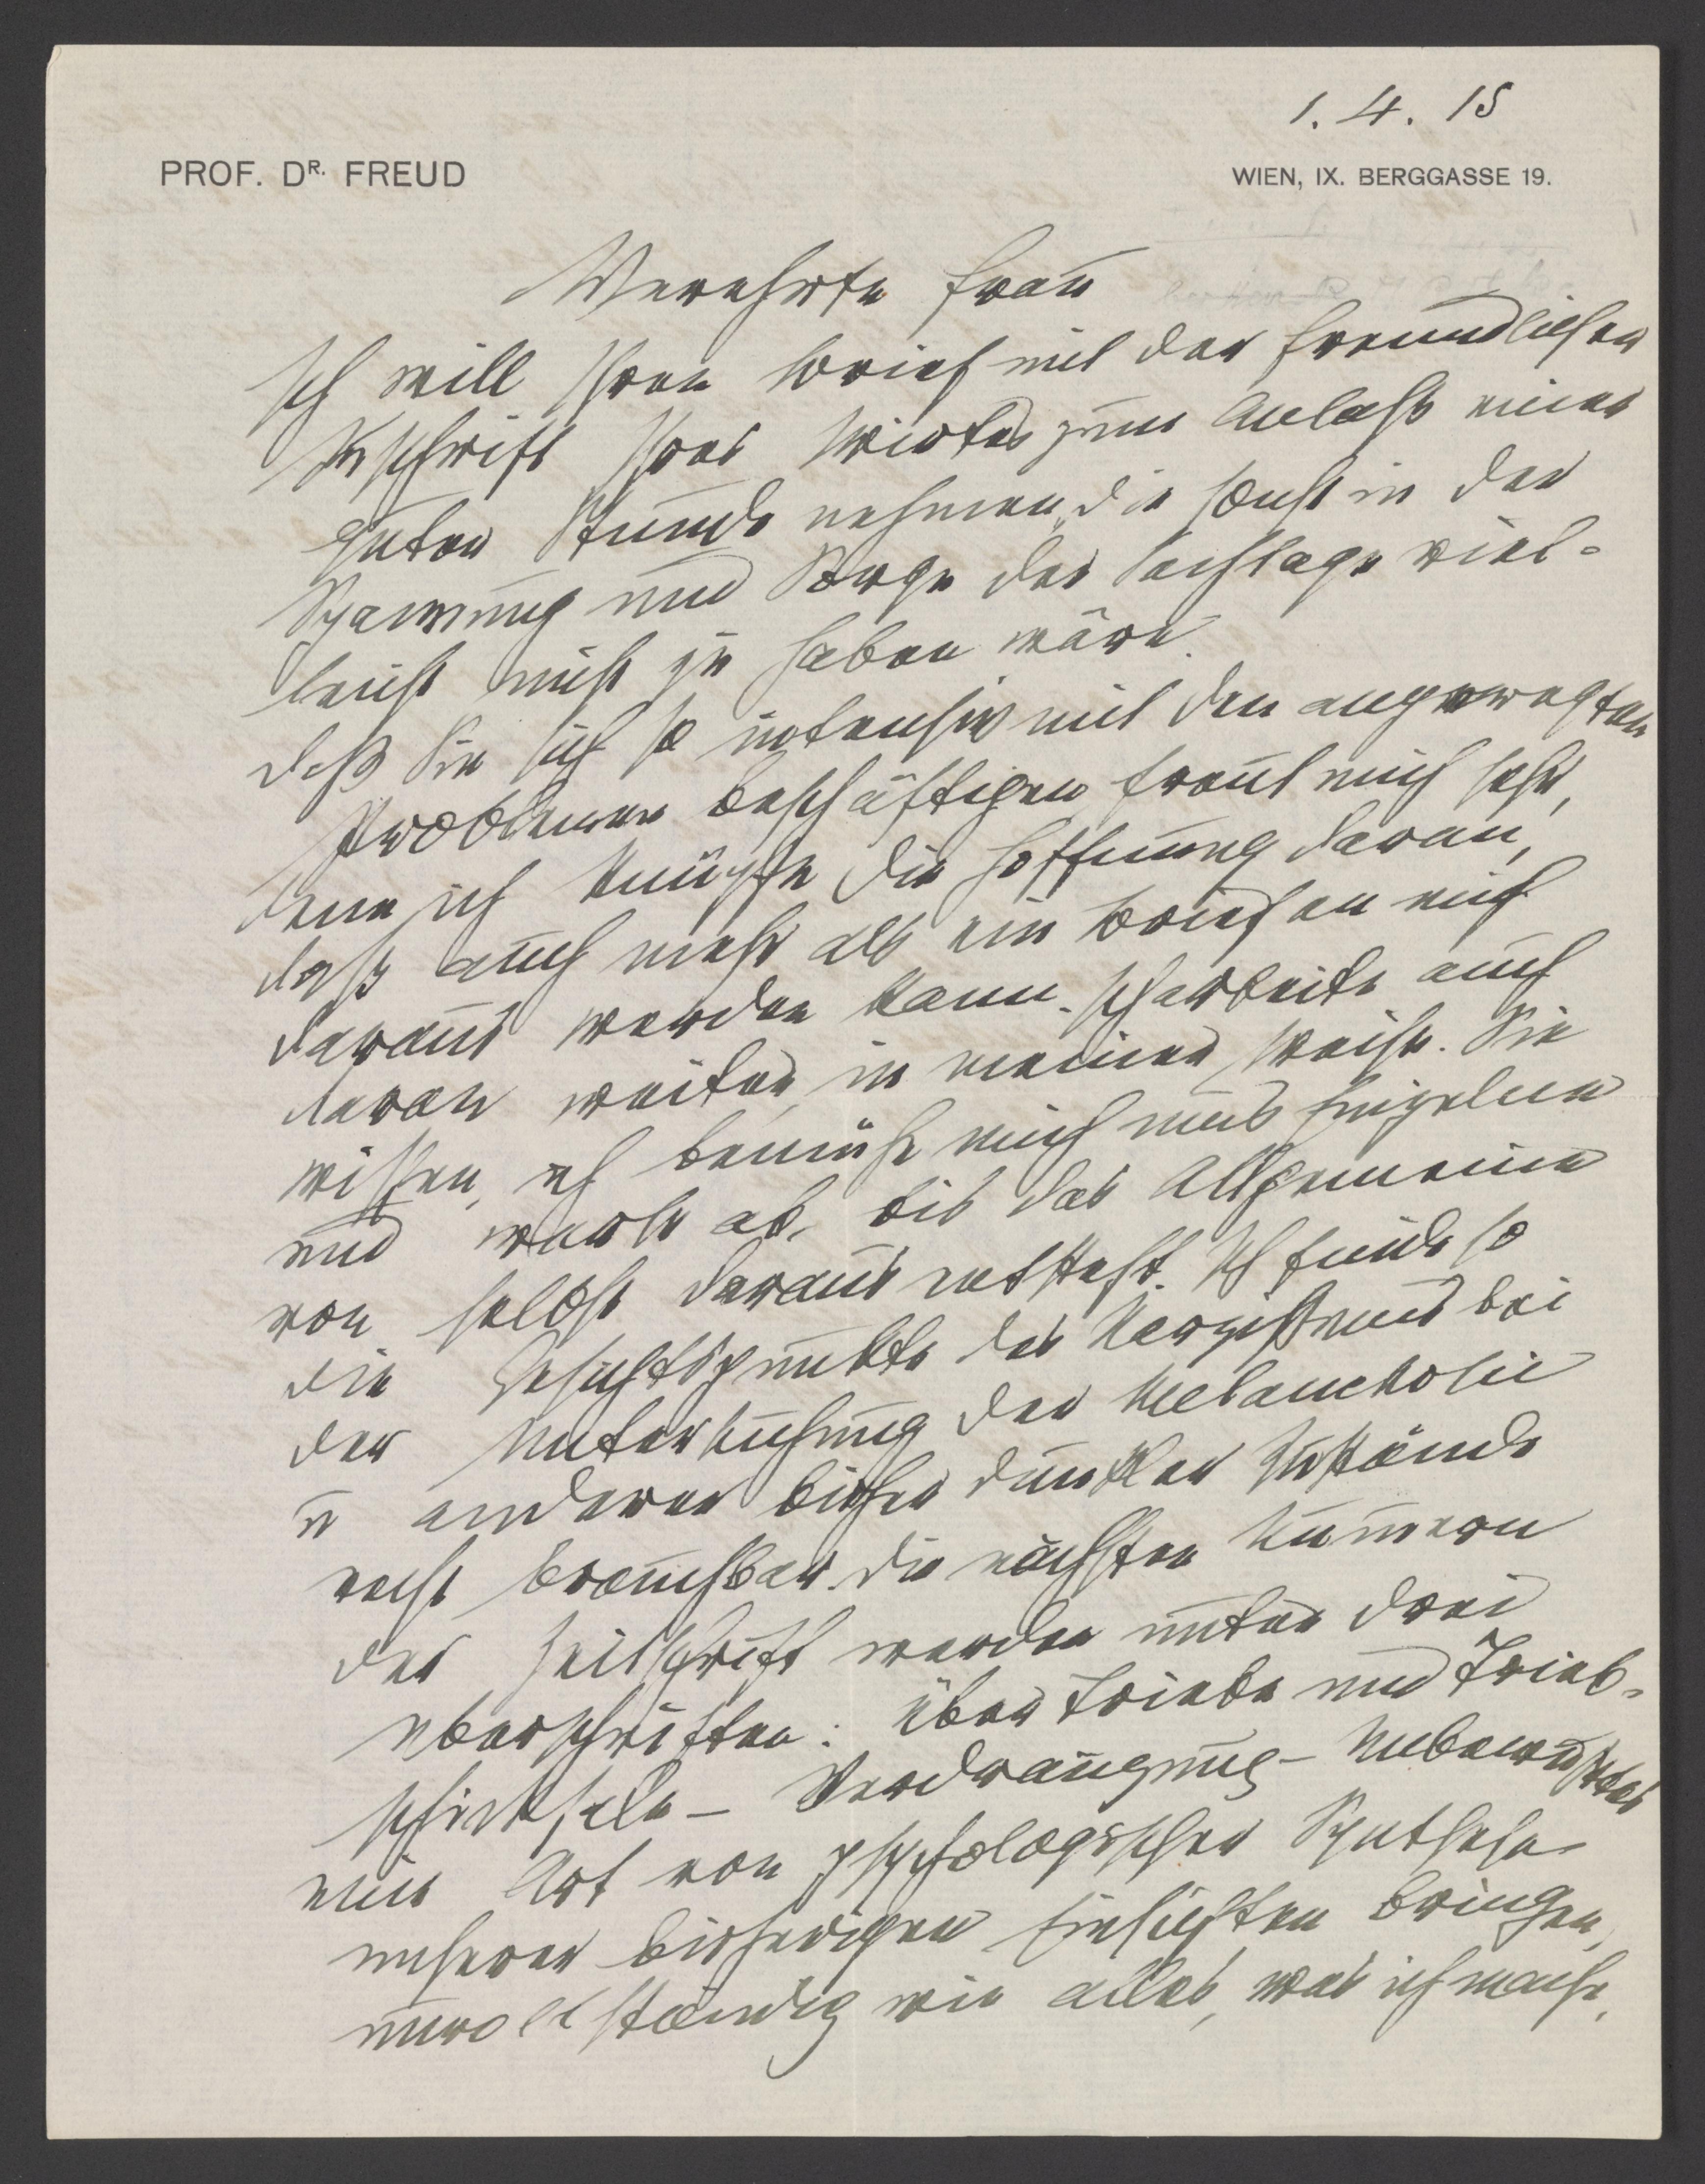 1. 4. 15
PROF. DR. FREUD
WIEN, IX. BERGGASSE 19.
Verehrte Frau
Ich will Ihren Brief mit der freundlichen
Zuschrift Ihres Wirtes zum Anlaß einer
guten Stunde nehmen, die sonst in der
Spannung und Sorge der Sachlage viel-
leicht nicht zu haben wäre.
Daß Sie sich so intensiv mit den angeregten
Problemen beschäftigen freut mich sehr,
denn ich knüpfe die Hoffnung daran,
daß auch mehr als ein Brief an mich
daraus werden kann. Ich arbeite auch
daran weiter, in meiner Weise. Sie
wissen, ich bemühe mich ums Einzelne
und warte ab, bis das Allgemeine
von selbst daraus entsteht. Ich finde so
die Gesichtspunkte des Narzißmus bei
der Untersuchung der Melancholie
u anderer bisher dunkler Zustände
recht brauchbar. Die nächsten Nummern
der Zeitschrift werden unter drei
Überschriften: Über Triebe und Trieb-
schicksale – Verdrängung – Unbewußtes
eine Art von psychologischer Synthese
unserer bisherigen Einsichten bringen,
unvollständig wie alles, was ich mache,